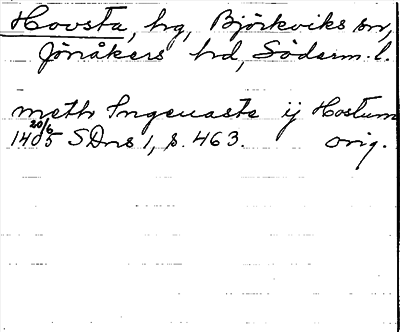 Hovsta, hg, Björkviks sn,
Jönåkers hd, Söderm. l.
meth Ingeuasta ij Hostum
20/6
1405 SDns 1, s. 463. orig.